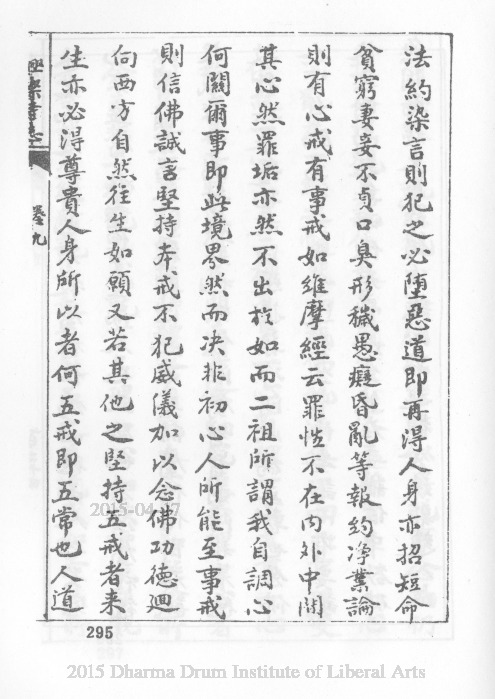 法約染言則犯之必墮惡道即再得人身亦招短命
貧窮妻妾不貞口臭形穢愚癡昏亂等報約淨業論
則有心戒有事戒如維摩經云罪性不在內外中間
其心然罪垢亦然不出於如而二祖所謂我自調心
何關爾事即此境界然而决非初心人所能至事戒
則信佛誠言堅持本戒不犯威儀加以念佛功德迴
向西方自然往生如願又若其他之堅持五戒者来
生亦必得尊貴人身所以者何五戒即五常也人道
卷九
295
2015-04-17
2015 Dharma Drum Institute of Liberal Arts